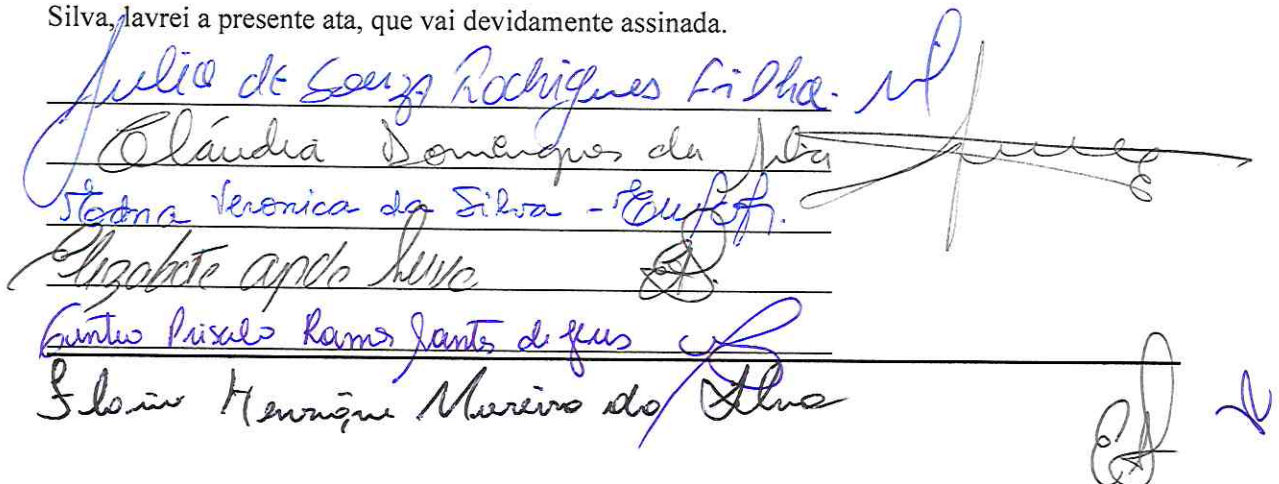 Silva, lavrei a presente ata, que vai devidamente assinada.
Julia de Souza Rodrigues Filha.
Cláudia Domingues da Silva
Veronica da Silva -
Elizabete apda Silva
Ramos Santos de Jesus
Henrique Moreira da Silva